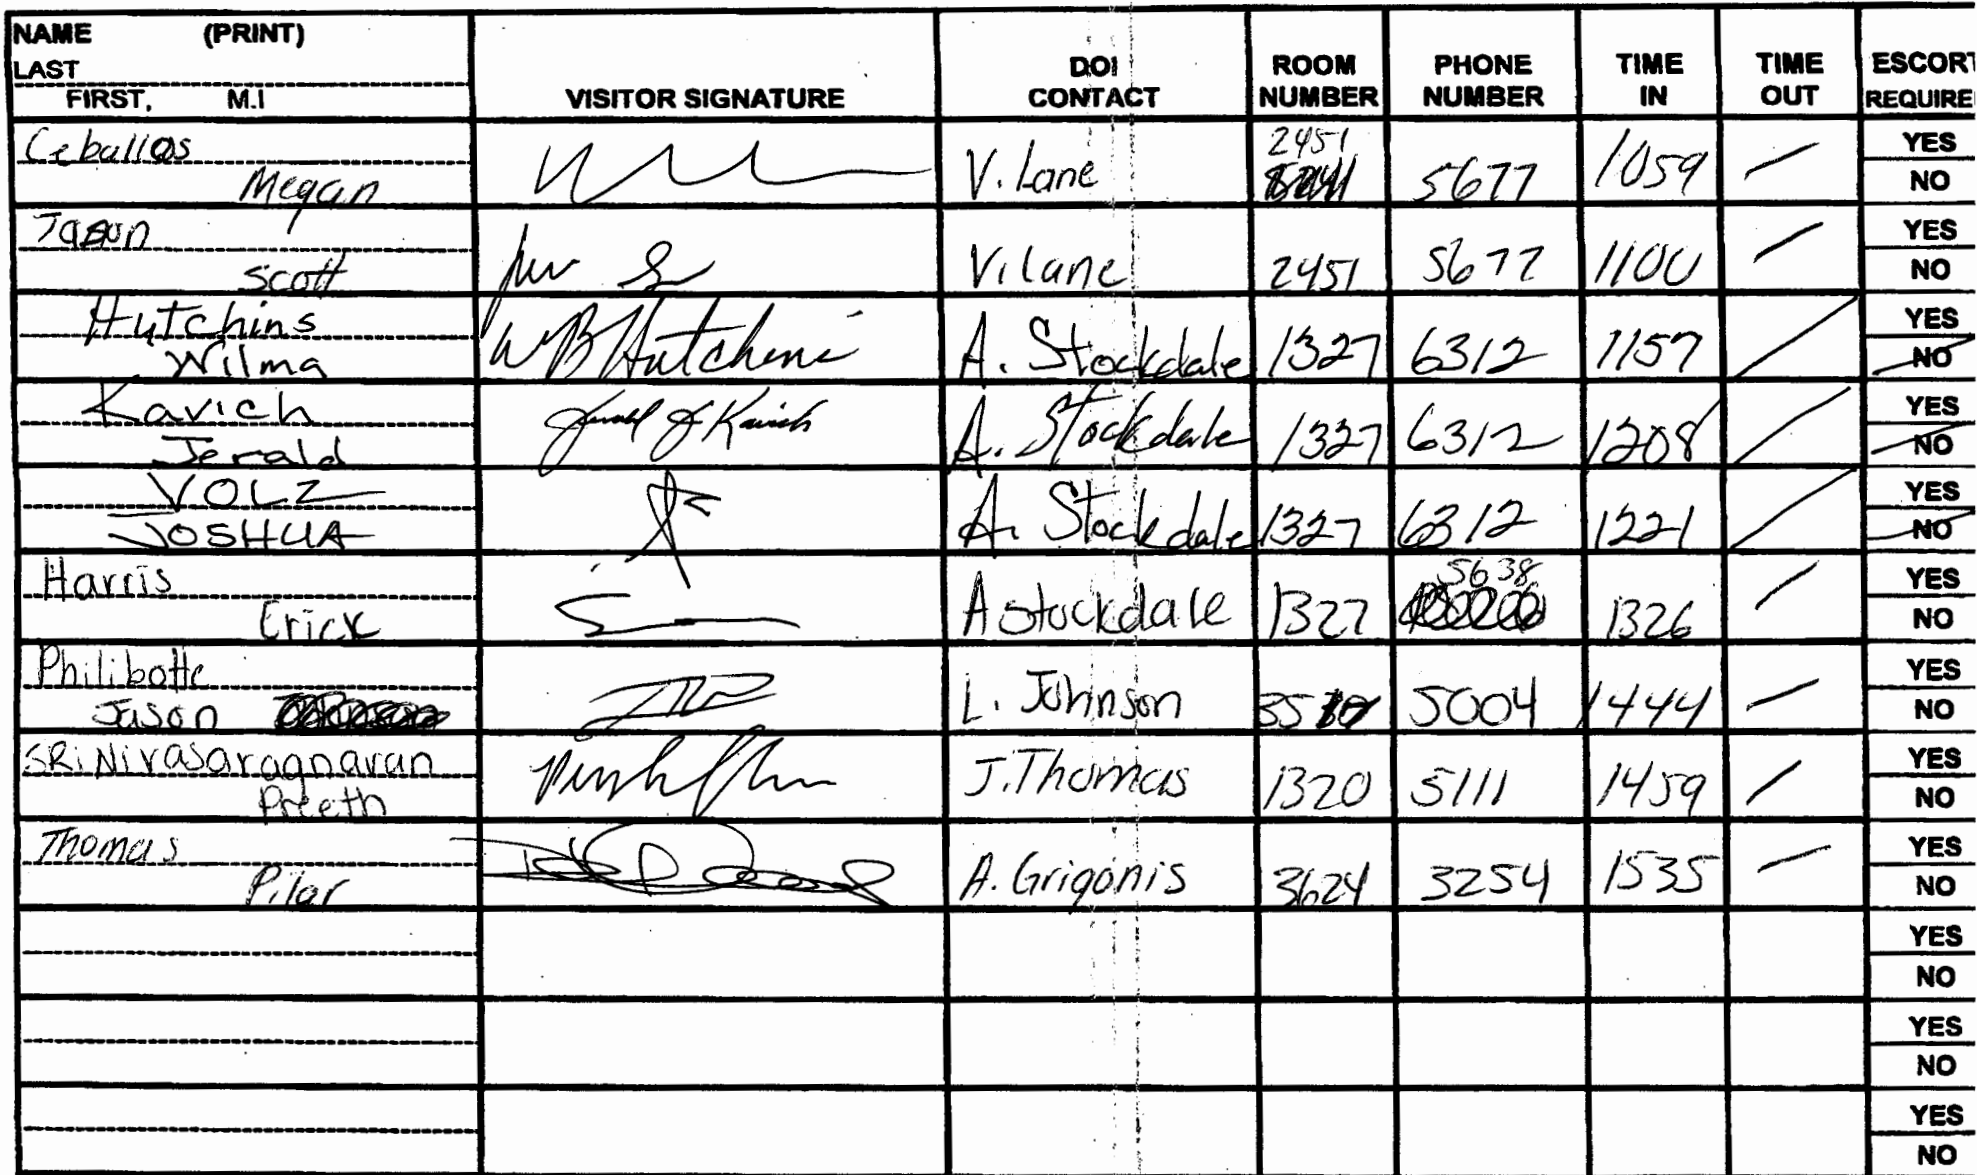 NAME (PRINT)
LAST
FIRST, M.I
VISITOR SIGNATURE
DOI CONTACT
ROOM NUMBER
PHONE NUMBER
TIME IN
TIME OUT
ESCORT REQUIRE
Ceballos
Megan
V. Lane 2451 5677 1059 YES NO
Jason
Scott
V. Lane 2451 5677 1100 YES NO
Hutchins
Wilma
WB Hutchins A. Stockdale 1327 6312 1157 YES NO
Kavich
Jerald
Jerald J Kavich A. Stockdale 1327 6312 1208 YES NO
VOLZ
JOSHUA
A. Stockdale 1327 6312 1221 YES NO
Harris
Erick
A Stockdale 1327 5638 1326 YES NO
Philibotte
Jason
L. Johnson 5004 1444 YES NO
SRiNivasaragnavan
Preeth
J. Thomas 1320 5111 1459 YES NO
Thomas
Pilar
A. Grigonis 3624 3254 1535 YES NO
YES
NO
YES
NO
YES
NO